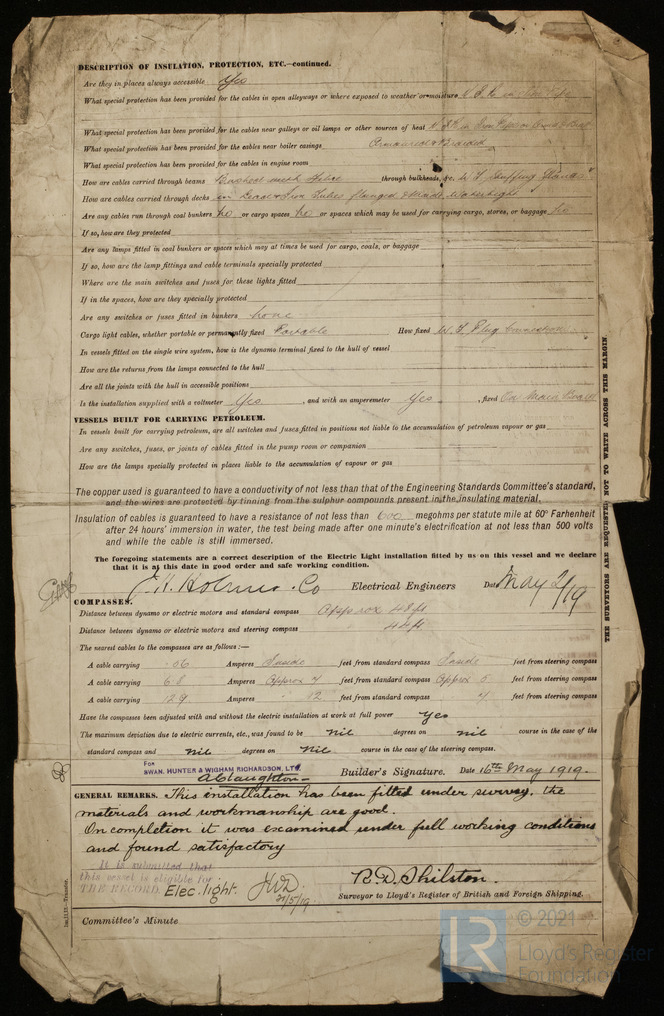 DESCRIPTION OF INSULATION, PROTECTION, ETC.—continued.
Are they in places always accessible Yes
What special protection has been provided for the cables in open alleyways or where exposed to weather or moisture
What special protection has been provided for the cables near galleys or oil lamps or other sources of heat
What special protection has been provided for the cables near boiler casings Armoured & Braided
What special protection has been provided for the cables in engine room
How are cables carried through beams Bushed with Fibre through bulkheads, &c. W.T. Stuffing Glands
How are cables carried through decks in Tubes flanged & Made Watertight
Are any cables run through coal bunkers No or cargo spaces No or spaces which may be used for carrying cargo, stores, or baggage No
If so, how are they protected
Are any lamps fitted in coal bunkers or spaces which may at times be used for cargo, coals, or baggage
If so, how are the lamp fittings and cable terminals specially protected
Where are the main switches and fuses for these lights fitted
If in the spaces, how are they specially protected
Are any switches or fuses fitted in bunkers none
Cargo light cables, whether portable or permanently fixed Portable How fixed W.T. Plug Connection
In vessels fitted on the single wire system, how is the dynamo terminal fixed to the hull of vessel
How are the returns from the lamps connected to the hull
Are all the joints with the hull in accessible positions
Is the installation supplied with a voltmeter Yes , and with an amperemeter Yes , fixed On Main Board
VESSELS BUILT FOR CARRYING PETROLEUM.
In vessels built for carrying petroleum, are all switches and fuses fitted in positions not liable to the accumulation of petroleum vapour or gas
Are any switches, fuses, or joints of cables fitted in the pump room or companion
How are the lamps specially protected in places liable to the accumulation of vapour or gas
The copper used is guaranteed to have a conductivity of not less than that of the Engineering Standards Committee's standard,
and the wires are protected by tinning from the sulphur compounds present in the insulating material.
Insulation of cables is guaranteed to have a resistance of not less than 600 megohms per statute mile at 60° Farhenheit
after 24 hours' immersion in water, the test being made after one minute's electrification at not less than 500 volts
and while the cable is still immersed.
The foregoing statements are a correct description of the Electric Light installation fitted by us on this vessel and we declare
that it is at this date in good order and safe working condition.
J.H. Holmes & Co Electrical Engineers Date May 2/19
COMPASSES.
Distance between dynamo or electric motors and standard compass Approx 48 ft
Distance between dynamo or electric motors and steering compass 44 ft
The nearest cables to the compasses are as follows:—
A cable carrying .06 Amperes Inside feet from standard compass Inside feet from steering compass
A cable carrying 6.8 Amperes Approx 4 feet from standard compass Approx 5 feet from steering compass
A cable carrying 129 Amperes 12 feet from standard compass feet from steering compass
Have the compasses been adjusted with and without the electric installation at work at full power Yes
The maximum deviation due to electric currents, etc., was found to be nil degrees on nil course in the case of the
standard compass and nil degrees on Nil course in the case of the steering compass.
FOR
SWAN, HUNTER & WIGHAM RICHARDSON, LTD.
A Claughton Builder's Signature. Date 16th May 1919.
GENERAL REMARKS. This installation has been fitted under survey, the
materials and workmanship are good.
On completion it was examined under full working conditions
and found satisfactory
It is submitted that
this vessel is eligible for
THE RECORD. Elec. light. JWD 21/5/19
R.D. Shilston.
Surveyor to Lloyd's Register of British and Foreign Shipping.
Committee's Minute
THE SURVEYORS ARE REQUESTED NOT TO WRITE ACROSS THIS MARGIN
LR
© 2021
Lloyd's Register
Foundation